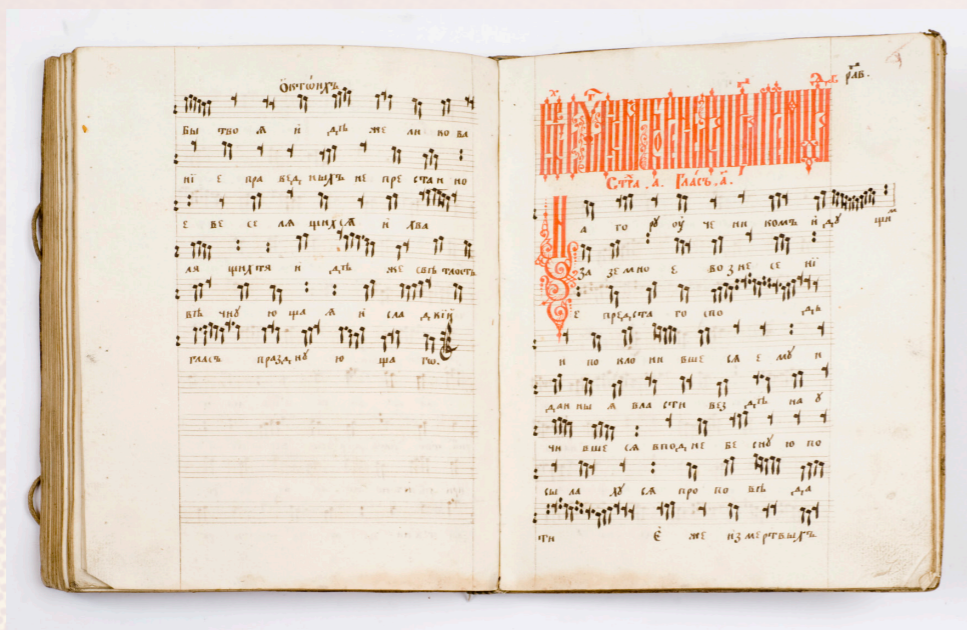 Ѻктѡихъ
бы тво ѧ и дѣ же ли ко ва
нї е пра вед ныхъ не пре ста н но
е ве се лѧ щихсѧ и хва
лѧ щихтѧ и дѣ же свѣ тлость
вѣ чну ю ща ѧ и сла дкїй
гласъ празд ну ю ща гѡ.
рлв.
Стⷯа .а҃. Гласъ .а҃.
На го ру оу че ни комъ и ду щи м
за зе мно е во зне се нї
е предста госпо дь
и по кло ни вше сѧ е му и
дан ны ѧ вла сти вез дѣ на у
чи вше сѧ впод не бе сну ю по
сы ла ху сѧ про по вѣ да
ти е же измертвыхъ